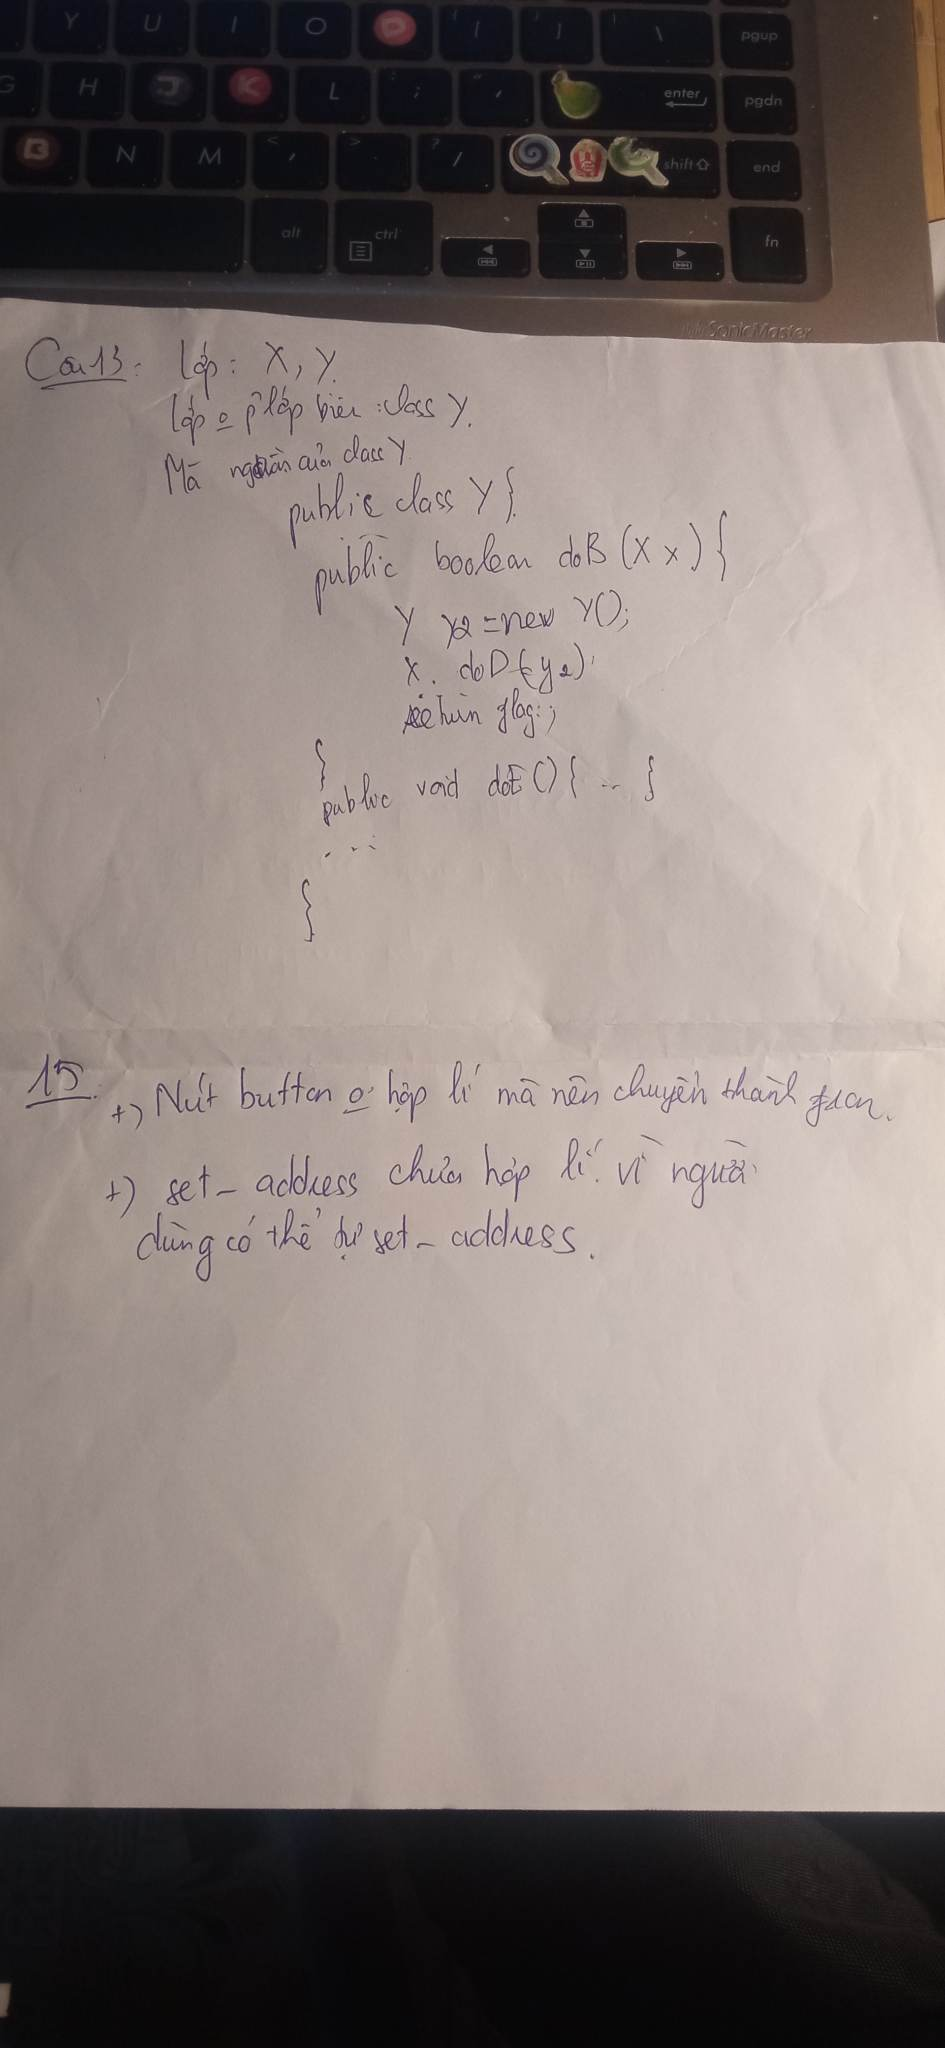 Y U I O P { [ } ] \ pgup
G H J K L : ; " ' enter pgdn
B N M < , > . ? / shift end
alt ctrl fn
SonicMaster
Câu 13: lớp: X, Y.
lớp o p' lớp biên: class Y.
Mã nguồn của class Y
public class Y {
public boolean doB (X x) {
Y y2 = new Y();
x. doD (y2);
return flag;
}
public void doE () { ... }
...
}
15. +) Nút button o hợp lí mà nên chuyển thành icon.
+) set_address chưa hợp lí vì người
dùng có thể tự set_address.